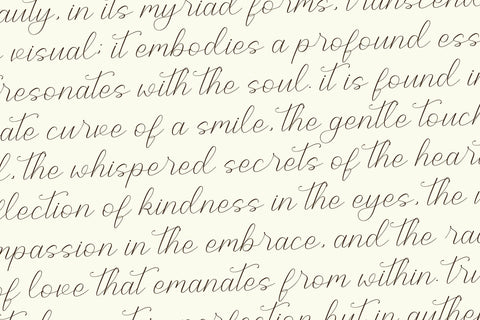 auty, in its myriad forms, transcend
visual; it embodies a profound ess
resonates with the soul. it is found in
ate curve of a smile, the gentle touch
l, the whispered secrets of the hear
llection of kindness in the eyes, the w
mpassion in the embrace, and the ra
of love that emanates from within. tru
perfection but in authen